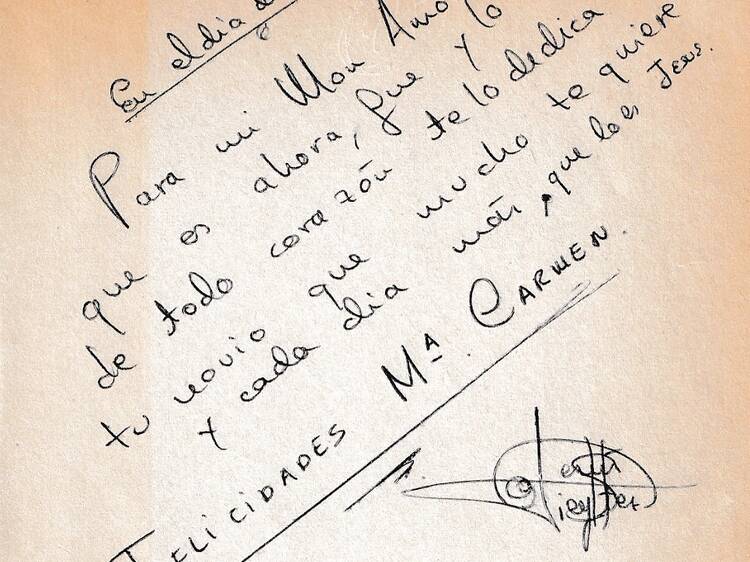 En el dia de
Para mi Mon Amo
que es ahora, que y lo
de todo corazón te lo dedica
tu novio que mucho te quiere
y cada dia más, que lo es Jesus.
FELICIDADES Mª. CARMEN.